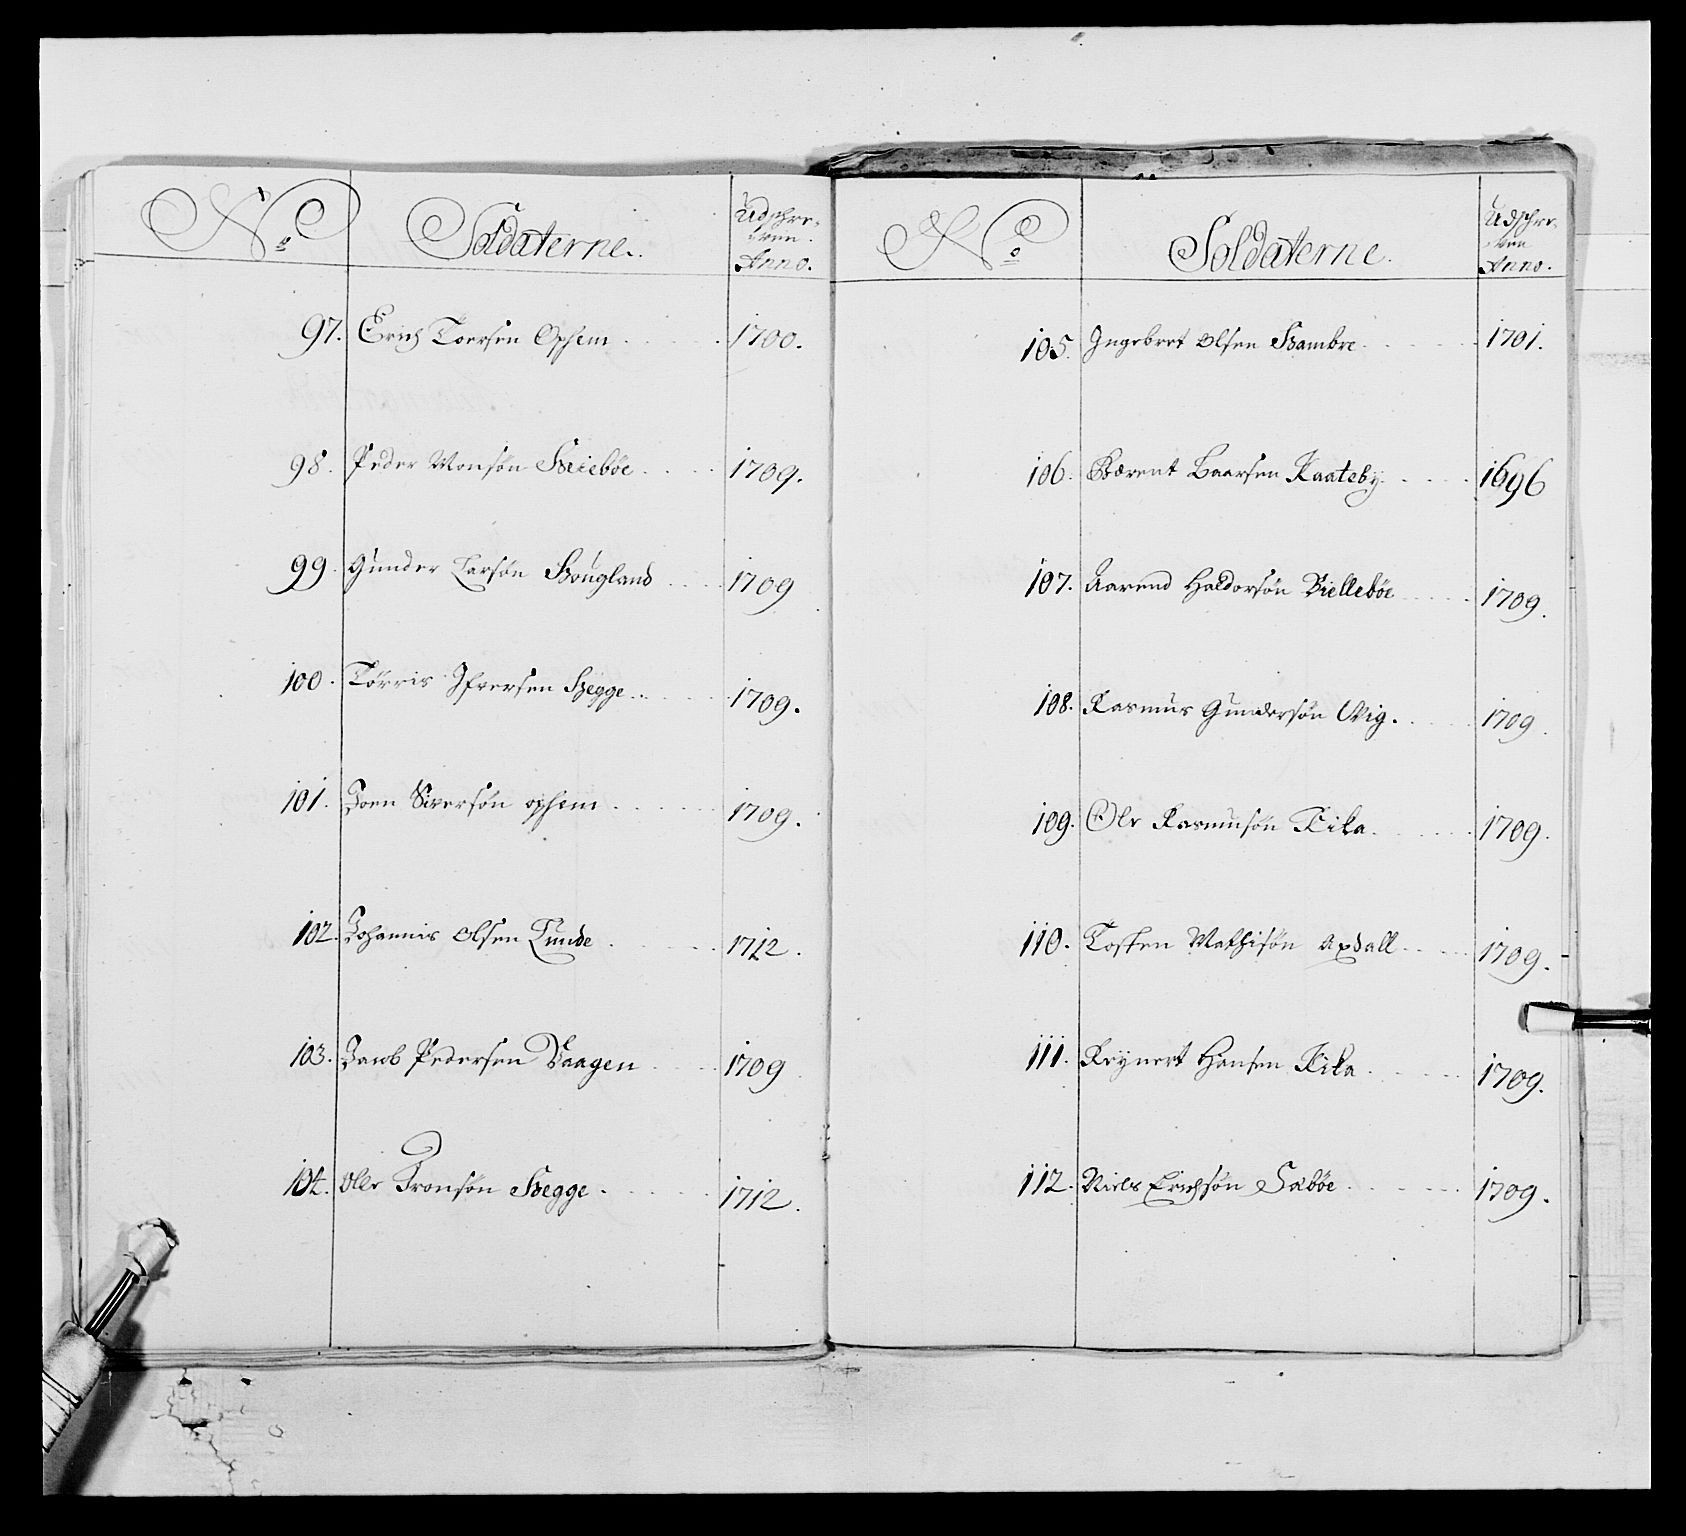 No
Soldaterne.
Udschre-
Anno.
97. Erich Toersen Ophem 1700.
98. Peder Monsøn 1709.
99. Gunder Larsøn Hougland 1709
100. Tørris Ifversen Hegge 1709.
101. Joen Siversøn ophem 1709.
102. Johannis Olsen Lunde 1712.
103. Jacob Pedersen Vaagen 1709
104. Olle Tronsøn Hegge 1712.
No
Soldaterne.
Udschre-
ven
Anno.
105. Ingebret Olsen Hambre 1701.
106. Bærent Baarsen Raateby 1696
107. Aarend Haldorsøn Biellebøe 1709.
108. Rasmus Gundersøn Wig. 1709.
109. Ole Rasmusøn 1709.
110. Tosten Mathisøn Axdall 1709.
111. Reynert Hansen 1709.
112. Niels Erichsøn Sæbøe 1709.